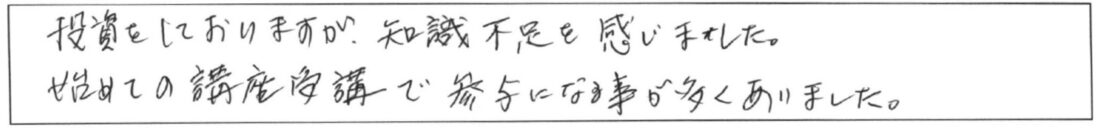 投資をしておりますが、知識不足を感じました。
始めての講座受講で参考になる事が多くありました。